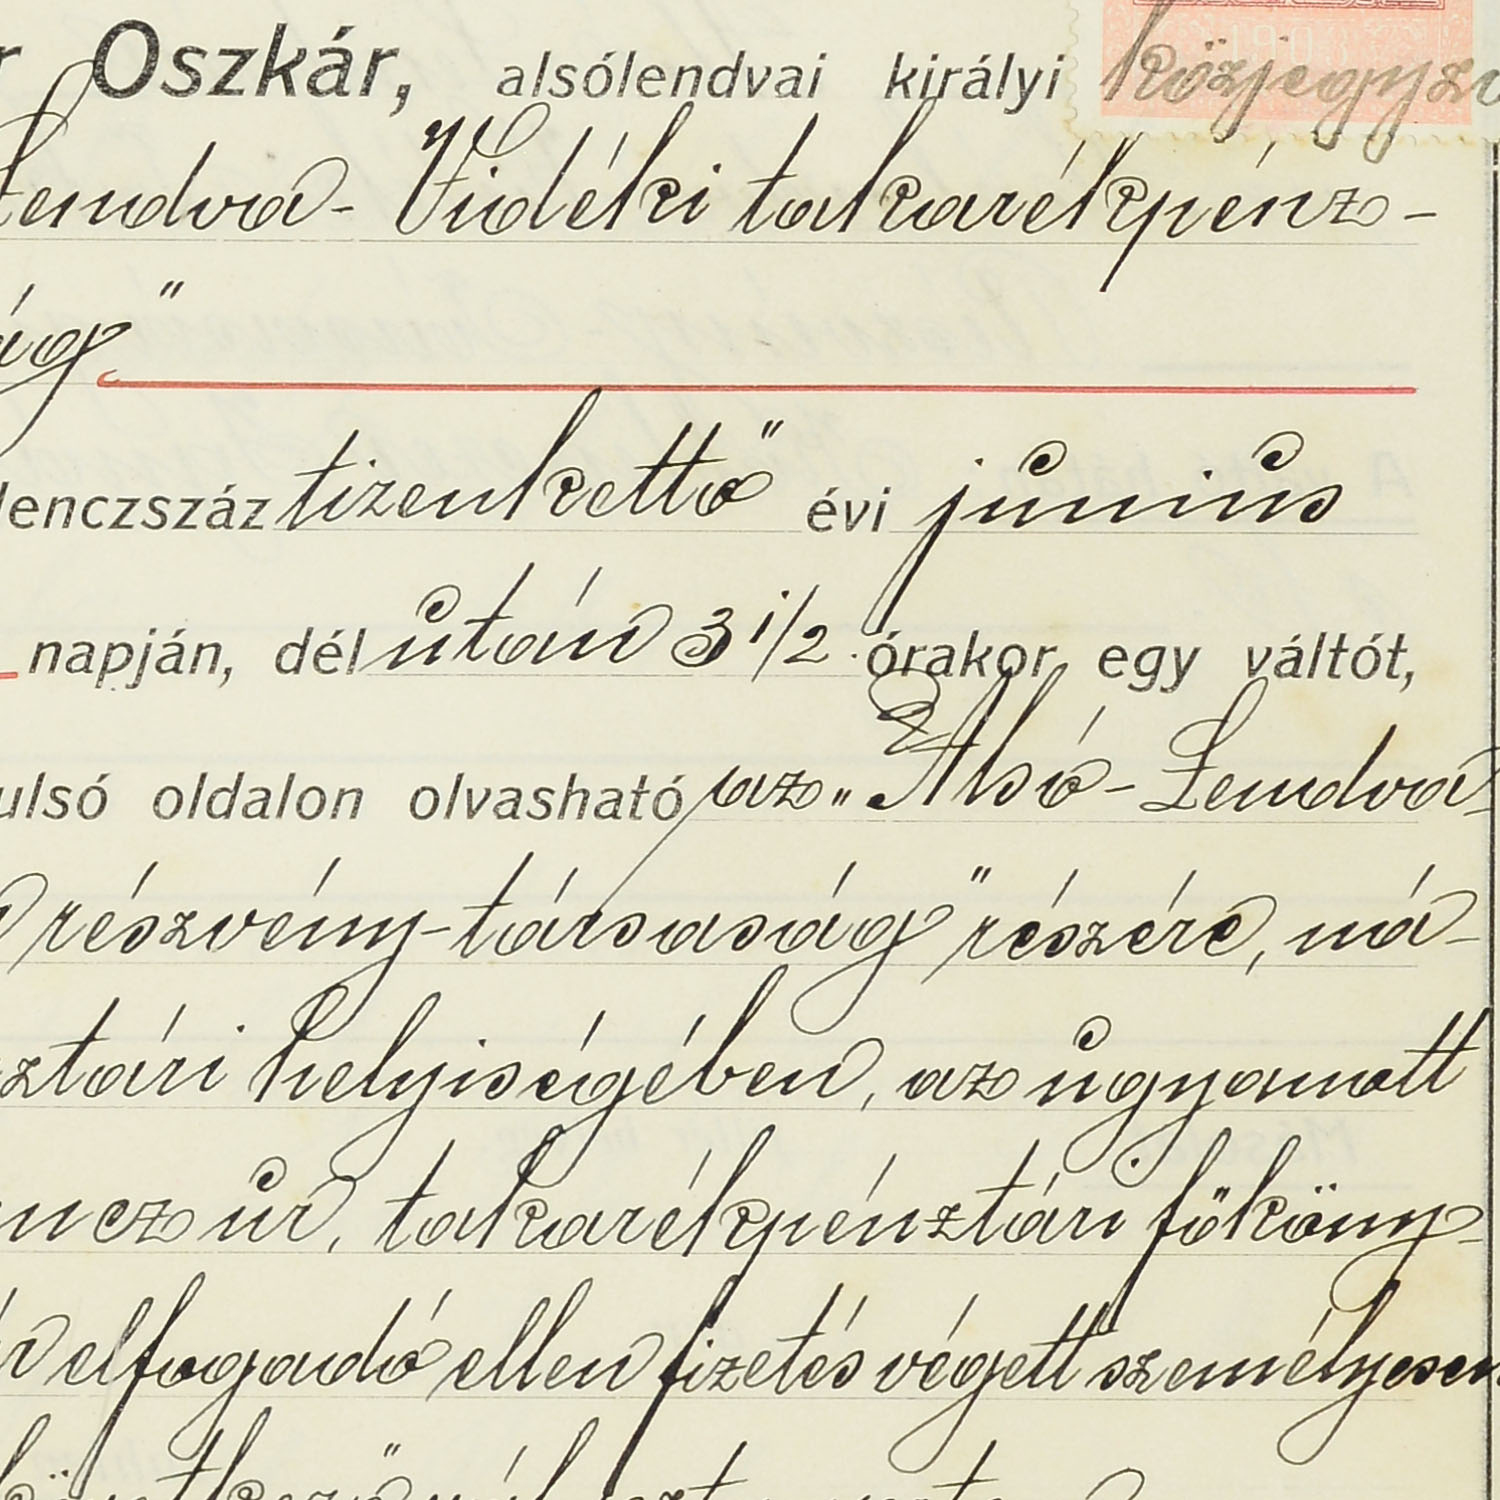 r Oszkár, alsólendvai királyi közjegyző
Lendva- Vidéki takarékpénz-
ág"
lenczszáz tizenkettő évi június
napján, dél után 3 1/2 órakor egy váltót,
ulsó oldalon olvasható az „Alsó-Lendva-
részvény-társaság" részére, ná-
ztári helyiségében, az ugyanott
ncz úr, takarékpénztári főköny-
elfogadó ellen fizetés végett személyesen